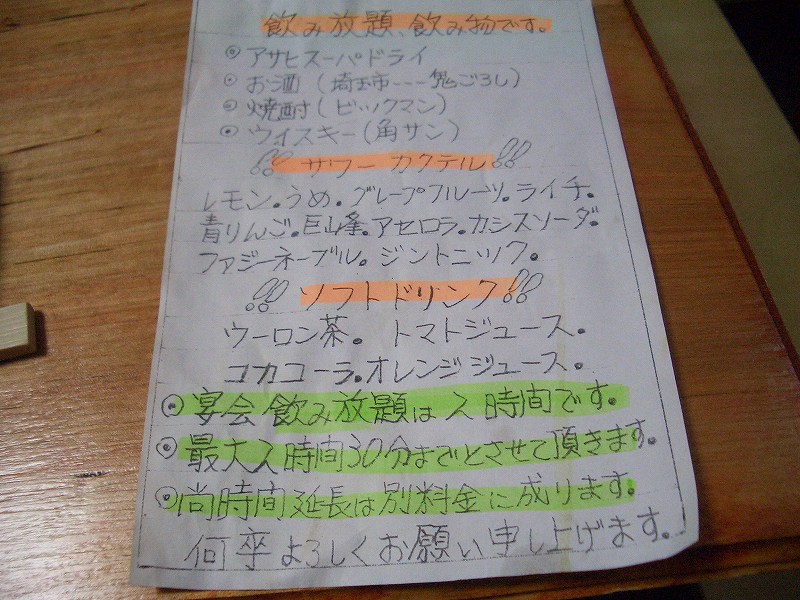 飲み放題、飲み物です。
◎ アサヒスーパドライ
⊙ お酒(埼玉市---鬼ごろし)
⊙ 焼酎(ビックマン)
⊙ ウイスキー(角サン)
!! サワー カクテル !!
レモン。うめ。グレープフルーツ。ライチ。
青りんご。巨峰。アセロラ。カシスソーダ。
ファジーネーブル。ジントニック。
!! ソフトドリンク !!
ウーロン茶。トマトジュース。
コカコーラ。オレンジジュース。
⊙ 宴会飲み放題は2時間です。
◎ 最大2時間30分までとさせて頂きます。
◎ 尚時間延長は別料金に成ります。
何卒よろしくお願い申し上げます。